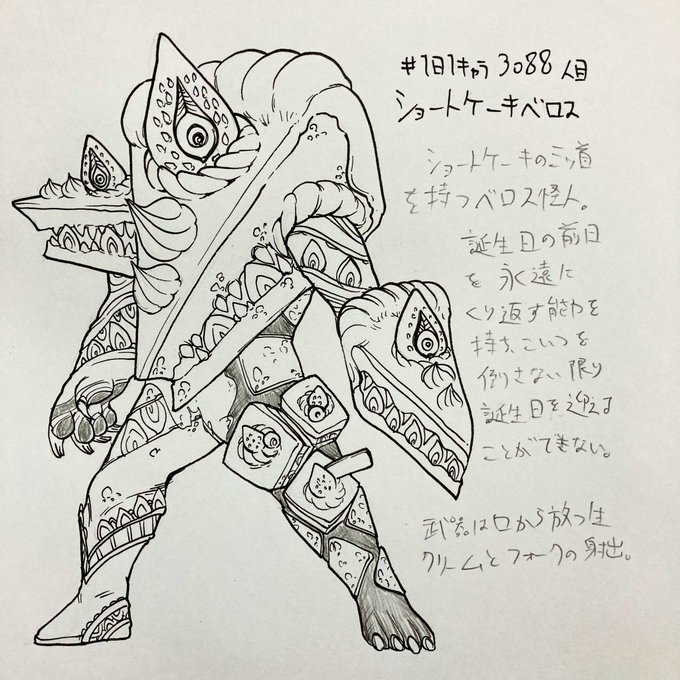 #1日1キャラ 3088人目
ショートケーキベロス
ショートケーキの三つ首
を持つベロス怪人。
誕生日の前日
を永遠に
くり返す能力を
持ち、こいつを
倒さない限り
誕生日を迎える
ことができない。
武器は口から放つ生
クリームとフォークの射出。